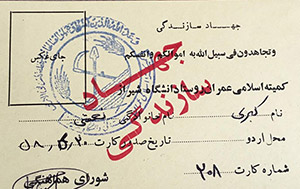 جهاد سازندگی
وتجاهدون فی سبیل الله به اموالکم وانفسکم
جای عکس
جهاد سازندگی
کمیته اسلامی عمران روستا دانشگاه شیراز
نام کبری نام خانوادگی
محل اردو تاریخ صدور کارت ۵۸/۶/۲۰
شماره کارت ۲۰۸ شورای هماهنگی